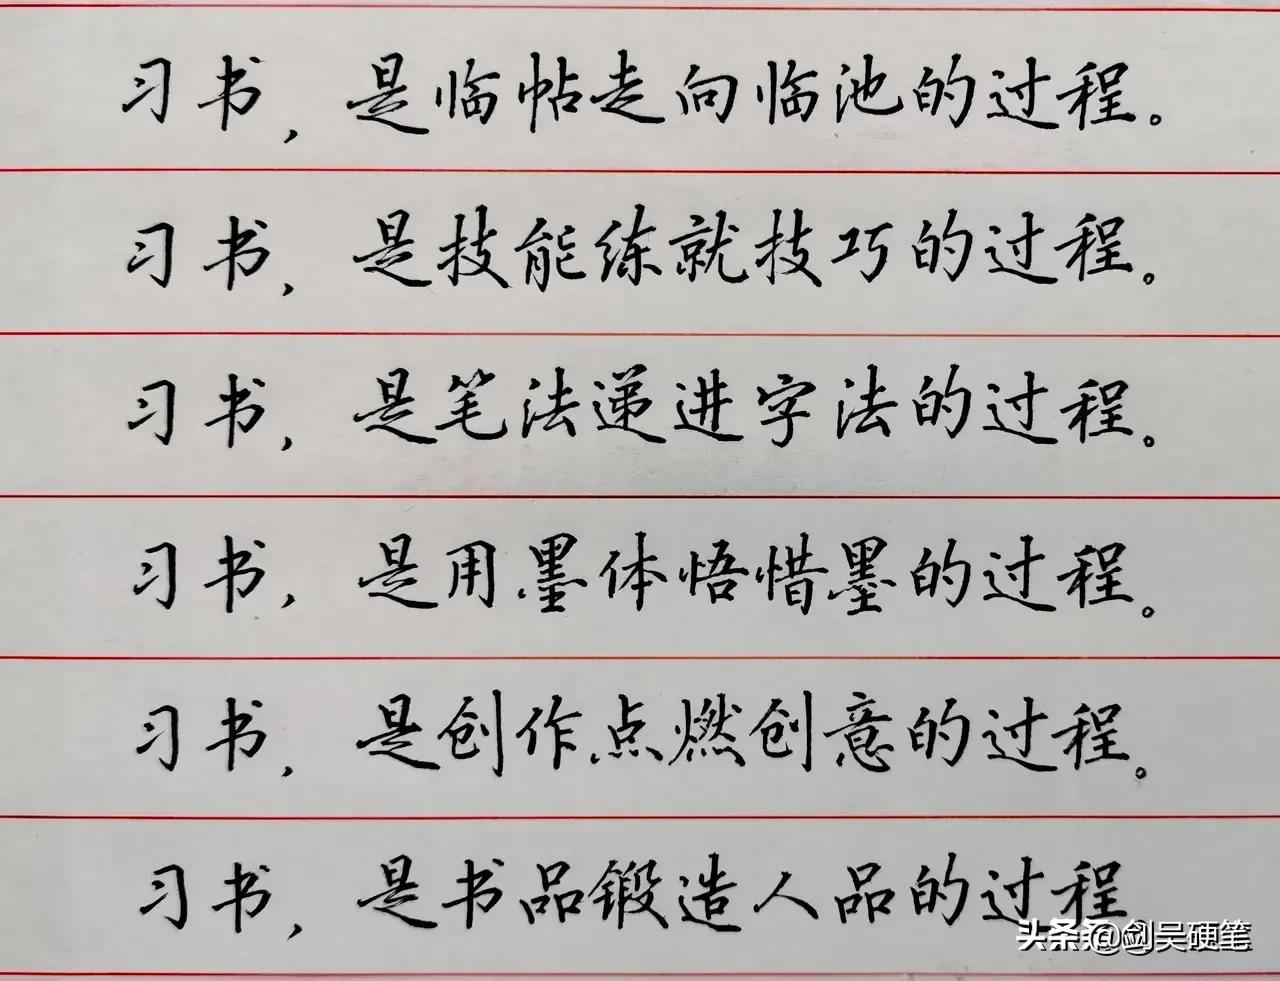 习书，是临帖走向临池的过程。
习书，是技能练就技巧的过程。
习书，是笔法递进字法的过程。
习书，是用墨体悟惜墨的过程。
习书，是创作点燃创意的过程。
习书，是书品锻造人品的过程
头条 @剑吴硬笔